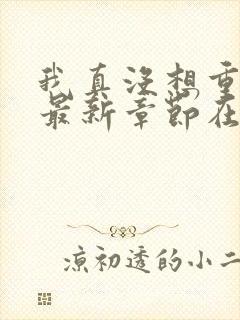 我真没想重
最新章节在
凉初透的小二